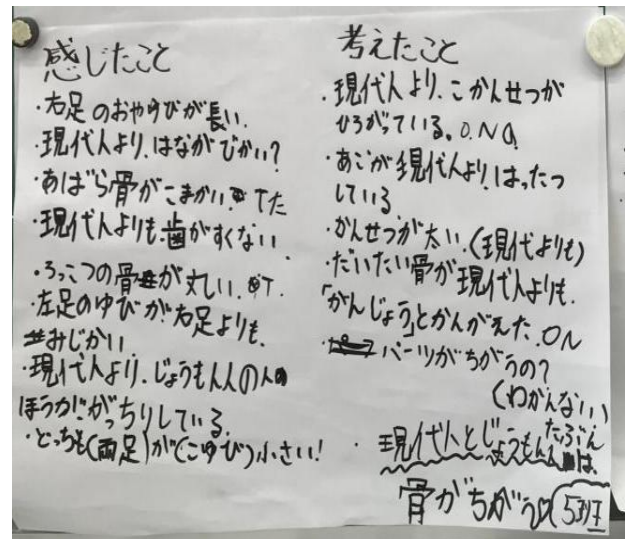 感じたこと
・右足のおやゆびが長い.
・現代人より.はながでかい?
・あばら骨がこまかい. Tた
・現代人よりも.歯がすくない
・ろっこつの骨が丸い. T.
・左足のゆびが右足よりも.
みじかい
・現代人より.じょうもん人の人の
ほうががっちりしている.
・どっちも(両足)が(こゆび)小さい!
考えたこと
・現代人より.こかんせつが
ひろがっている。O.N
・あごが現代人より.はったつ
している
・かんせつが太い.(現代よりも)
・だいたい骨が現代人よりも.
「がんじょう」とかんがえた.ON
・パーツがちがうの?
(わかんない)
・現代人とじょうもん人は、たぶん
骨がちがう♡ 5班